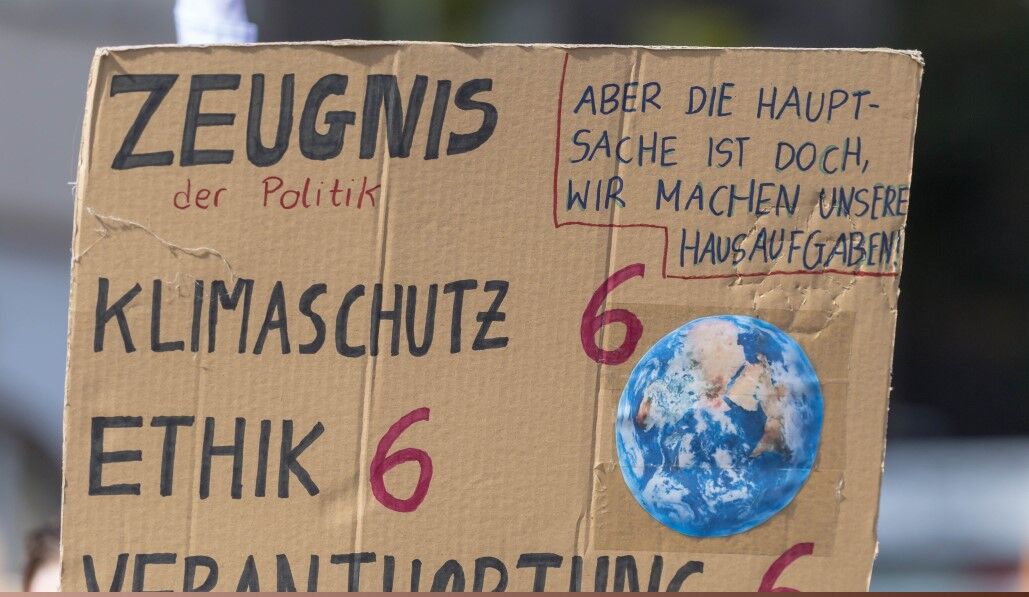 ZEUGNIS
der Politik
ABER DIE HAUPT-
SACHE IST DOCH,
WIR MACHEN UNSERE
HAUSAUFGABEN!
KLIMASCHUTZ 6
ETHIK 6
VERANTWORTUNG 6